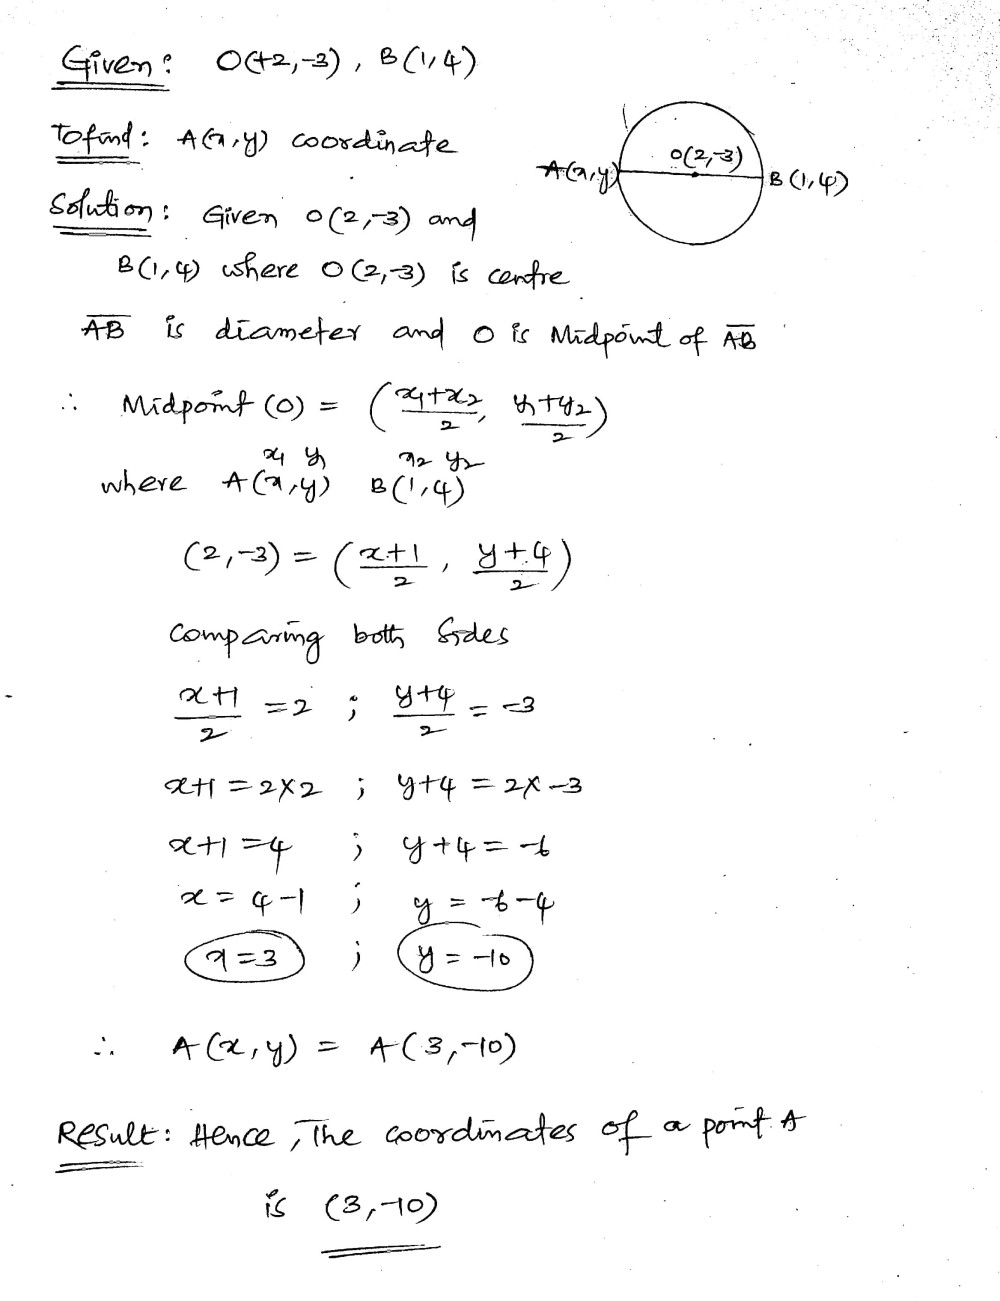 Given: O(+2,-3), B(1,4)
To find: A(x,y) coordinate
A(x,y) O(2,-3) B(1,4)
Solution: Given O(2,-3) and
B(1,4) where O(2,-3) is centre
A̅B̅ is diameter and O is Midpoint of A̅B̅
∴ Midpoint (O) = ( (x₁+x₂)/2, (y₁+y₂)/2 )
x₁ y₁ x₂ y₂
where A(x,y) B(1,4)
(2,-3) = ( (x+1)/2, (y+4)/2 )
Comparing both sides
(x+1)/2 = 2 ; (y+4)/2 = -3
x+1 = 2×2 ; y+4 = 2×-3
x+1 = 4 ; y+4 = -6
x = 4-1 ; y = -6-4
x=3 ; y = -10
∴ A(x,y) = A(3,-10)
Result: Hence, The coordinates of a point A
is (3,-10)